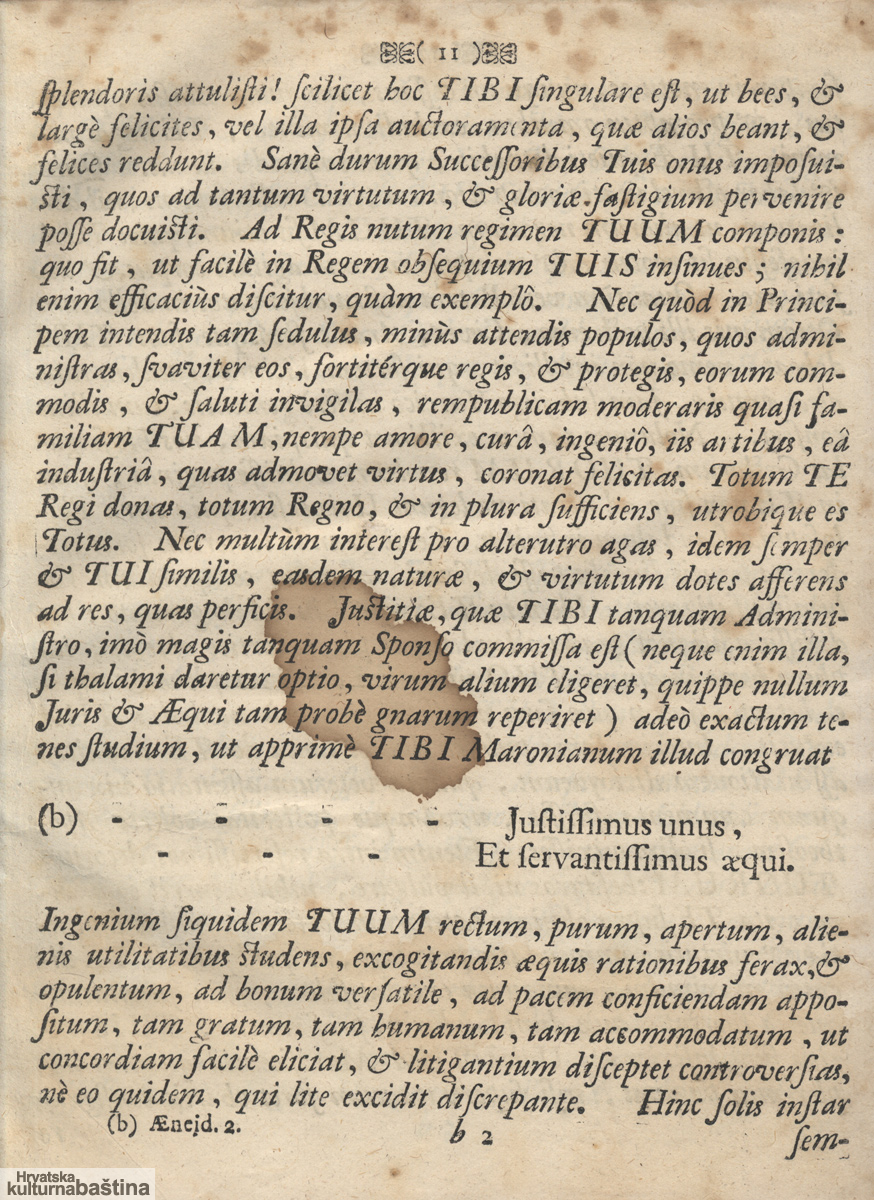 ( 11 )
ſplendoris attuliſti! ſcilicet hoc TIBI ſingulare eſt, ut bees, &
largè felicites, vel illa ipſa auctoramenta, quæ alios beant, &
felices reddunt. Sanè durum Succeſſoribus Tuis onus impoſui-
ſti, quos ad tantum virtutum, & gloriæ faſtigium pervenire
poſſe docuiſti. Ad Regis nutum regimen TUUM componis:
quo fit, ut facilè in Regem obſequium TUIS inſinues; nihil
enim efficaciùs diſcitur, quàm exemplô. Nec quòd in Princi-
pem intendis tam ſedulus, minùs attendis populos, quos admi-
niſtras, ſvaviter eos, fortitérque regis, & protegis, eorum com-
modis, & ſaluti invigilas, rempublicam moderaris quaſi fa-
miliam TUAM, nempe amore, curâ, ingeniô, iis artibus, eâ
induſtriâ, quas admovet virtus, coronat felicitas. Totum TE
Regi donas, totum Regno, & in plura ſufficiens, utrobique es
Totus. Nec multùm intereſt pro alterutro agas, idem ſemper
& TUI ſimilis, easdem naturæ, & virtutum dotes afferens
ad res, quas perficis. Juſtitiæ, quæ TIBI tanquam Admini-
ſtro, imò magis tanquam Sponſo commiſſa eſt (neque enim illa,
ſi thalami daretur optio, virum alium eligeret, quippe nullum
Juris & Æqui tam probè gnarum reperiret) adeò exactum te-
nes ſtudium, ut apprimè TIBI Maronianum illud congruat
(b) - - - - Juſtiſſimus unus,
- - - Et ſervantiſſimus æqui.
Ingenium ſiquidem TUUM rectum, purum, apertum, alie-
nis utilitatibus ſtudens, excogitandis æquis rationibus ferax, &
opulentum, ad bonum verſatile, ad pacem conficiendam appo-
ſitum, tam gratum, tam humanum, tam accommodatum, ut
concordiam facilè eliciat, & litigantium diſceptet controverſias,
nè eo quidem, qui lite excidit diſcrepante. Hinc ſolis inſtar
(b) Æneid. 2. b 2
ſem-
Hrvatska
kulturnabaština